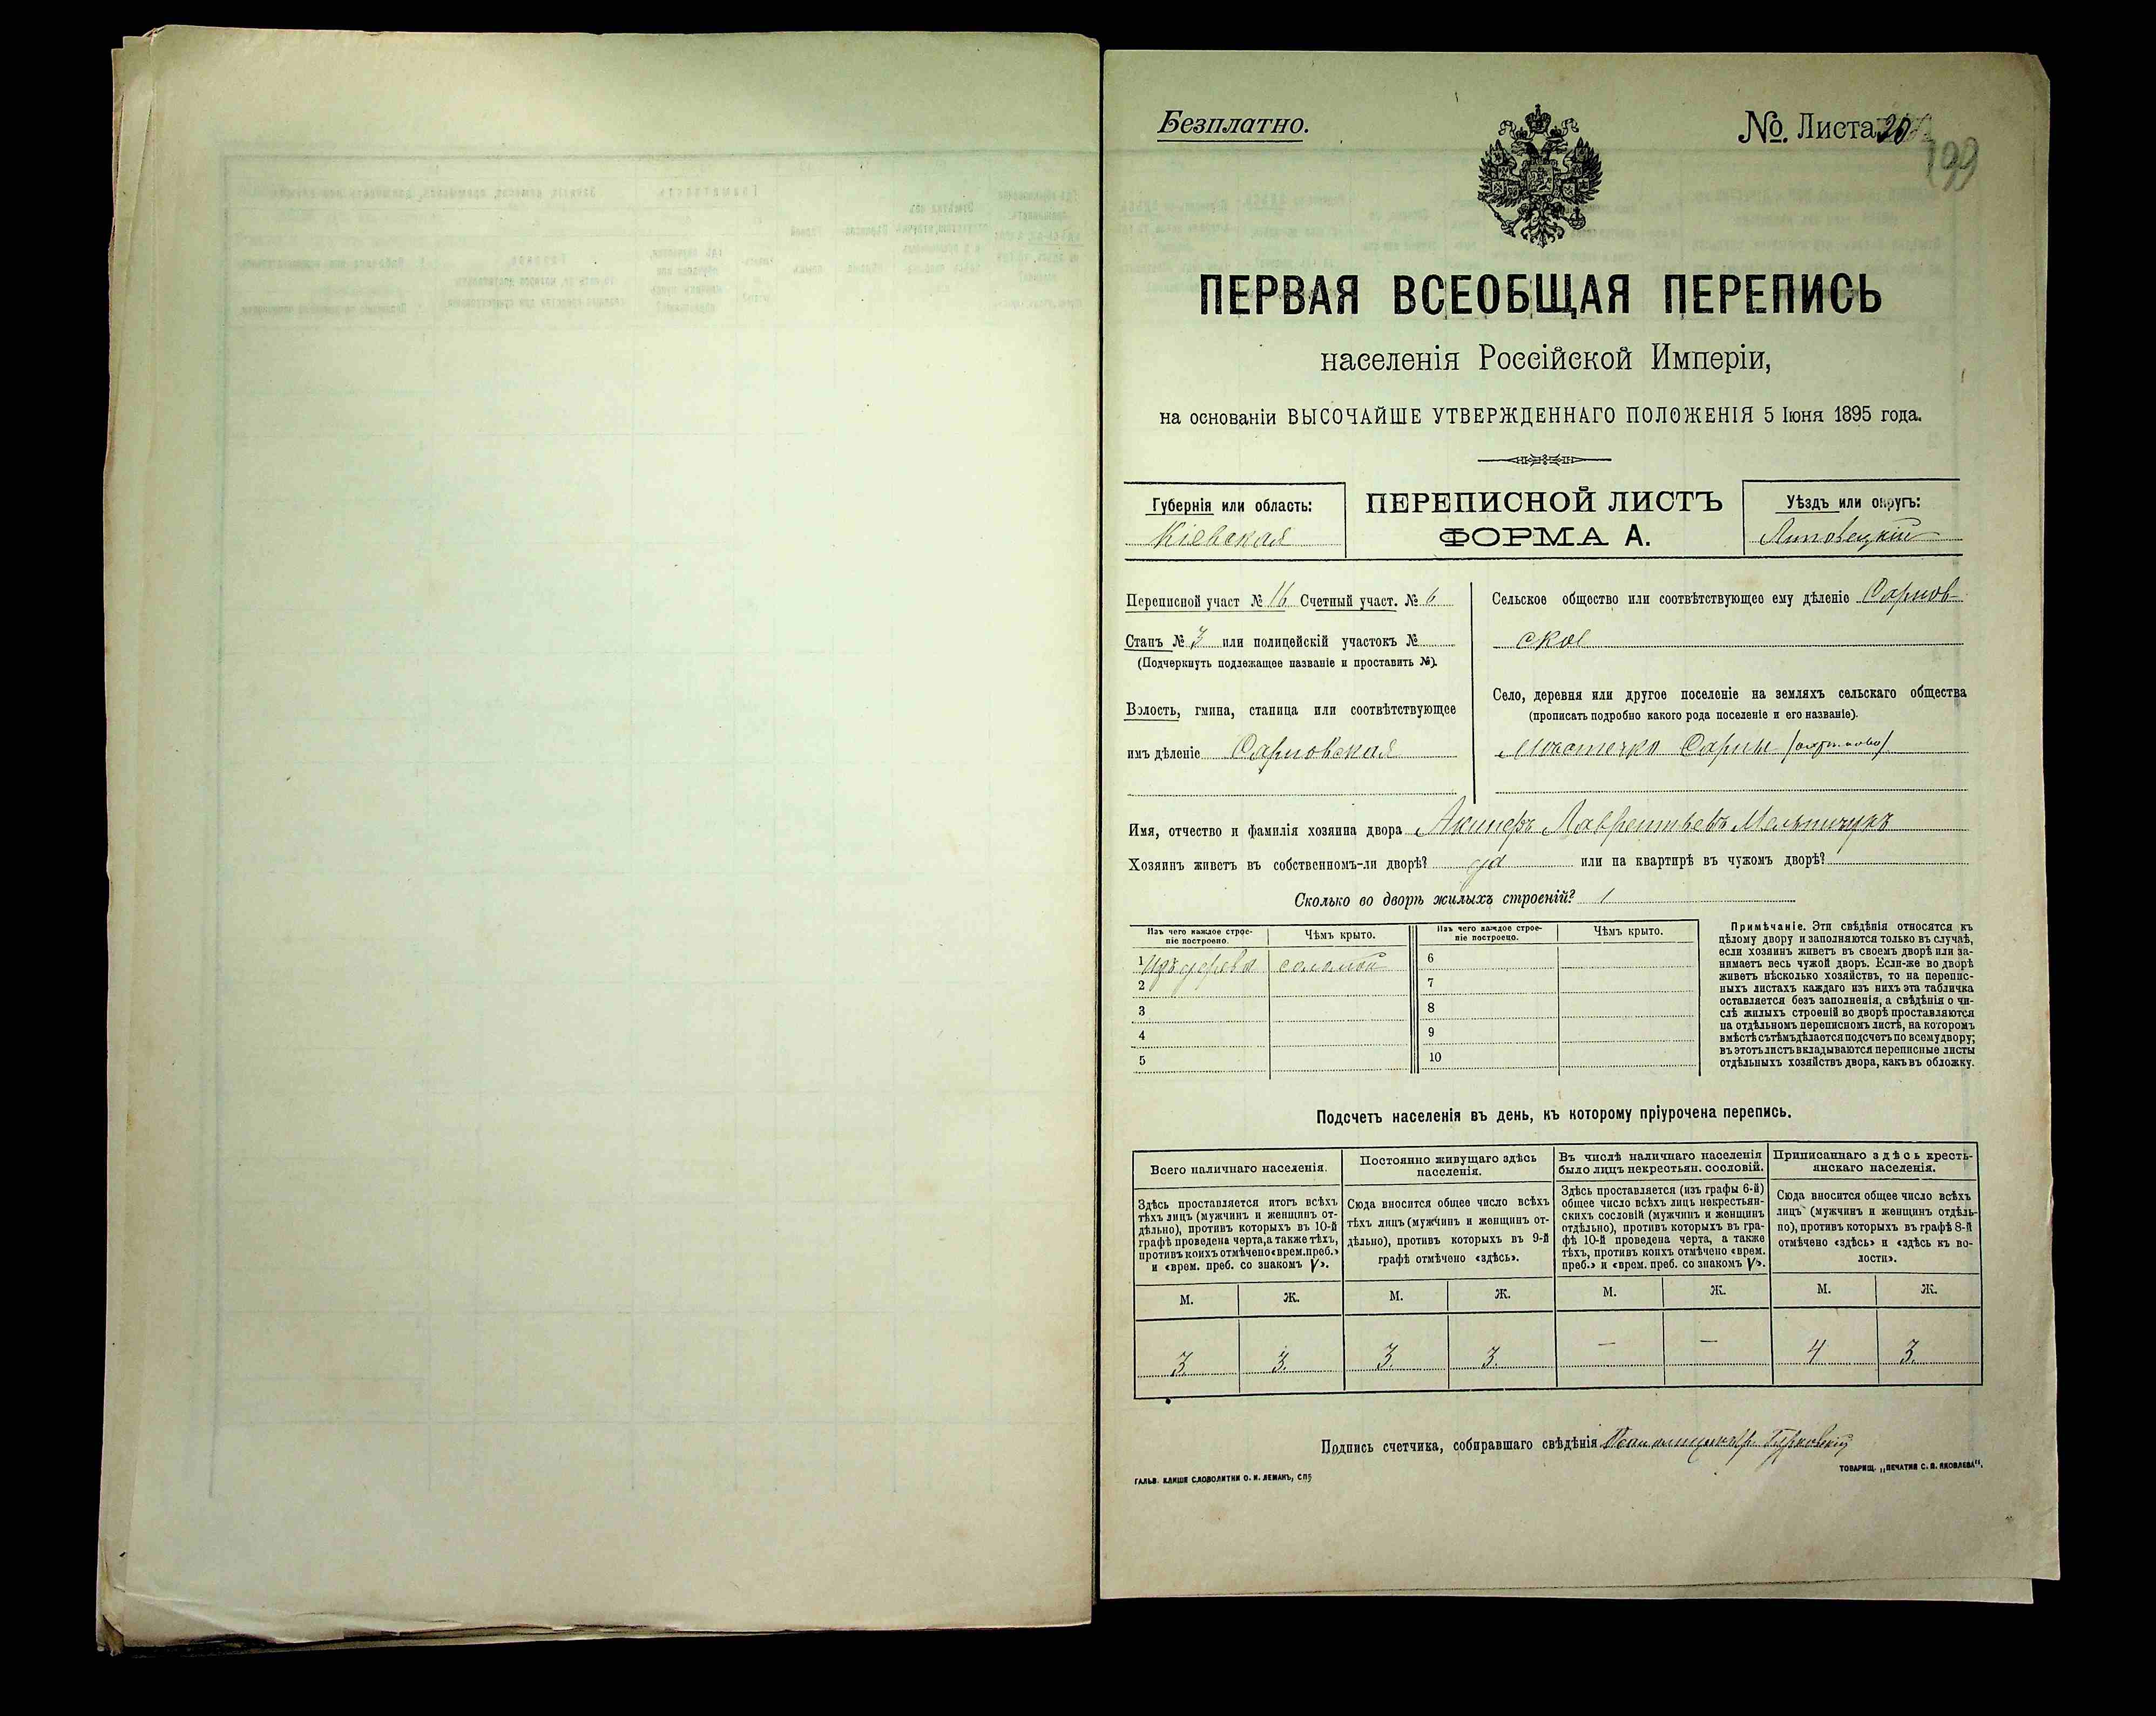 Безплатно.
№. Листа 20
199
ПЕРВАЯ ВСЕОБЩАЯ ПЕРЕПИСЬ
населенія Россійской Имперіи,
на основаніи ВЫСОЧАЙШЕ УТВЕРЖДЕННАГО ПОЛОЖЕНІЯ 5 Іюня 1895 года.
Губернія или область:
Кіевская
ПЕРЕПИСНОЙ ЛИСТЪ
ФОРМА А.
Уѣздъ или округъ:
Липовецкій
Переписной участ № 16 Счетный участ. № 6
Станъ № 3 или полицейскій участокъ №
(Подчеркнуть подлежащее названіе и проставить №).
Волость, гмина, станица или соотвѣтствующее
имъ дѣленіе Сарновская
Сельское общество или соотвѣтствующее ему дѣленіе Сарнов-
ское
Село, деревня или другое поселеніе на земляхъ сельскаго общества
(прописать подробно какого рода поселеніе и его названіе).
Мѣстечко Сарны
Имя, отчество и фамилія хозяина двора Лаврентьевъ Мельничукъ
Хозяинъ живетъ въ собственномъ-ли дворѣ? да или на квартирѣ въ чужомъ дворѣ?
Сколько во дворѣ жилыхъ строеній? 1
Изъ чего каждое строе-
ніе построено.
Чѣмъ крыто.
Изъ чего каждое строе-
ніе построено.
Чѣмъ крыто.
1 Изъ дерева соломой
2
3
4
5
6
7
8
9
10
Примѣчаніе. Эти свѣдѣнія относятся къ
цѣлому двору и заполняются только въ случаѣ,
если хозяинъ живетъ въ своемъ дворѣ или за-
нимаетъ весь чужой дворъ. Если-же во дворѣ
живетъ нѣсколько хозяйствъ, то на перепис-
ныхъ листахъ каждаго изъ нихъ эта табличка
оставляется безъ заполненія, а свѣдѣнія о чи-
слѣ жилыхъ строеній во дворѣ проставляются
на отдѣльномъ переписномъ листѣ, на которомъ
вмѣстѣ съ тѣмъ дѣлается подсчетъ по всему двору;
въ этотъ листъ вкладываются переписные листы
отдѣльныхъ хозяйствъ двора, какъ въ обложку.
Подсчетъ населенія въ день, къ которому пріурочена перепись.
Всего наличнаго населенія.
Здѣсь проставляется итогъ всѣхъ
тѣхъ лицъ (мужчинъ и женщинъ от-
дѣльно), противъ которыхъ въ 10-й
графѣ проведена черта, а также тѣхъ,
противъ коихъ отмѣчено «врем. преб.»
и «врем. преб. со знакомъ V».
Постоянно живущаго здѣсь
населенія.
Сюда вносится общее число всѣхъ
тѣхъ лицъ (мужчинъ и женщинъ от-
дѣльно), противъ которыхъ въ 9-й
графѣ отмѣчено «здѣсь».
Въ числѣ наличнаго населенія
было лицъ некрестьян. сословій.
Здѣсь проставляется (изъ графы 6-й)
общее число всѣхъ лицъ некрестьян-
скихъ сословій (мужчинъ и женщинъ
отдѣльно), противъ которыхъ въ гра-
фѣ 10-й проведена черта, а также
тѣхъ, противъ коихъ отмѣчено «врем.
преб.» и «врем. преб. со знакомъ V».
Приписаннаго здѣсь кресть-
янскаго населенія.
Сюда вносится общее число всѣхъ
лицъ (мужчинъ и женщинъ отдѣль-
но), противъ которыхъ въ графѣ 8-й
отмѣчено «здѣсь» и «здѣсь къ во-
лости».
М. Ж. М. Ж. М. Ж. М. Ж.
3 3. 3. 3. — — 4 3.
Подпись счетчика, собиравшаго свѣдѣнія
ГАЛЬВ. КЛИШЕ СЛОВОЛИТНИ О. И. ЛЕМАНЪ, СПБ
ТОВАРИЩ. „ПЕЧАТНЯ С. П. ЯКОВЛЕВА".